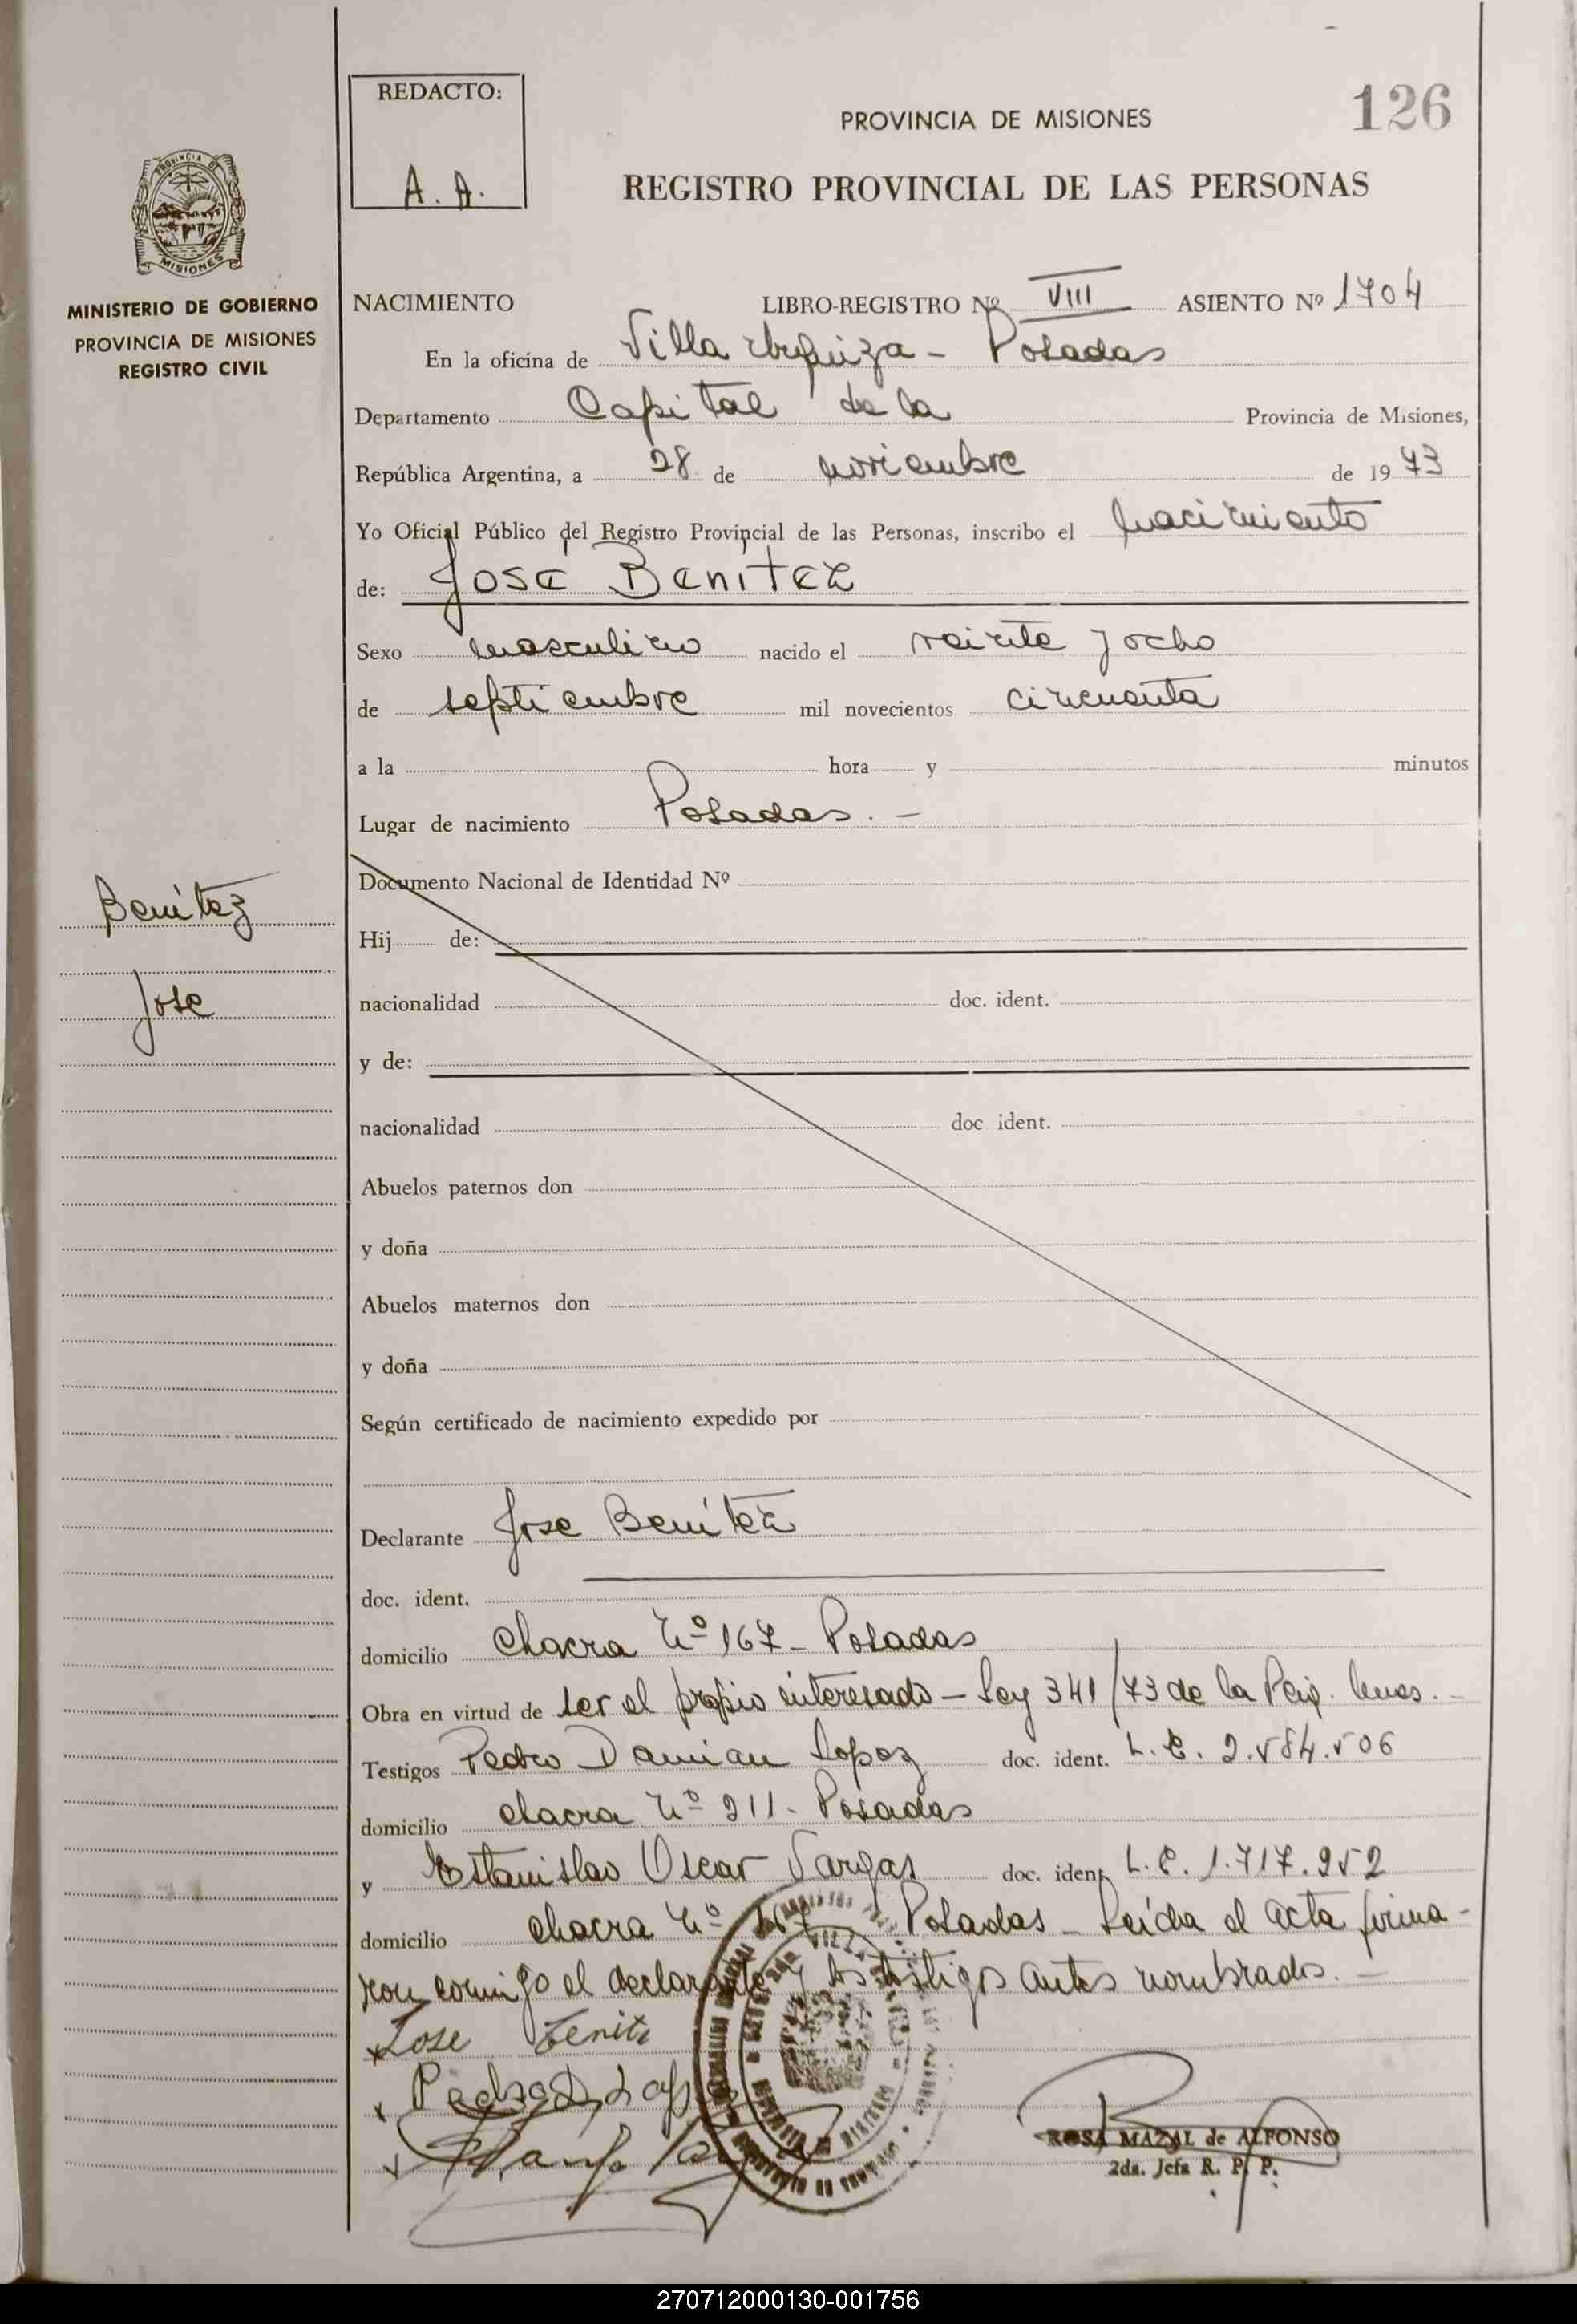 REDACTO:
A. A.
PROVINCIA DE MISIONES
126
REGISTRO PROVINCIAL DE LAS PERSONAS
PROVINCIA DE
MISIONES
MINISTERIO DE GOBIERNO
PROVINCIA DE MISIONES
REGISTRO CIVIL
NACIMIENTO LIBRO-REGISTRO Nº VIII ASIENTO Nº 1704
En la oficina de Villa Urquiza - Posadas
Departamento Capital de la Provincia de Misiones,
República Argentina, a 28 de noviembre de 1973
Yo Oficial Público del Registro Provincial de las Personas, inscribo el nacimiento
de: José Benítez
Sexo masculino nacido el veinte y ocho
de septiembre mil novecientos cincuenta
a la hora y minutos
Lugar de nacimiento Posadas. -
Documento Nacional de Identidad Nº
Benítez
Hij de:
Jose
nacionalidad doc. ident.
y de:
nacionalidad doc ident.
Abuelos paternos don
y doña
Abuelos maternos don
y doña
Según certificado de nacimiento expedido por
Declarante Jose Benítez
doc. ident.
domicilio chacra Nº 167 - Posadas
Obra en virtud de ser el propio interesado - Ley 341/73 de la Pcia. Mnes. -
Testigos Pedro Damian Lopez doc. ident. L. E. 2.584.506
domicilio chacra Nº 211 - Posadas
y Estanislao Oscar Vargas doc. ident. L. E. 1.717.952
domicilio chacra Nº 167 Posadas - Leída el acta firma-
ron conmigo el declarante y los testigos antes nombrados. -
x Jose Benite
x Pedro D. Lopez
x
ROSA MAZAL de ALFONSO
2da. Jefa R. P. P.
270712000130-001756